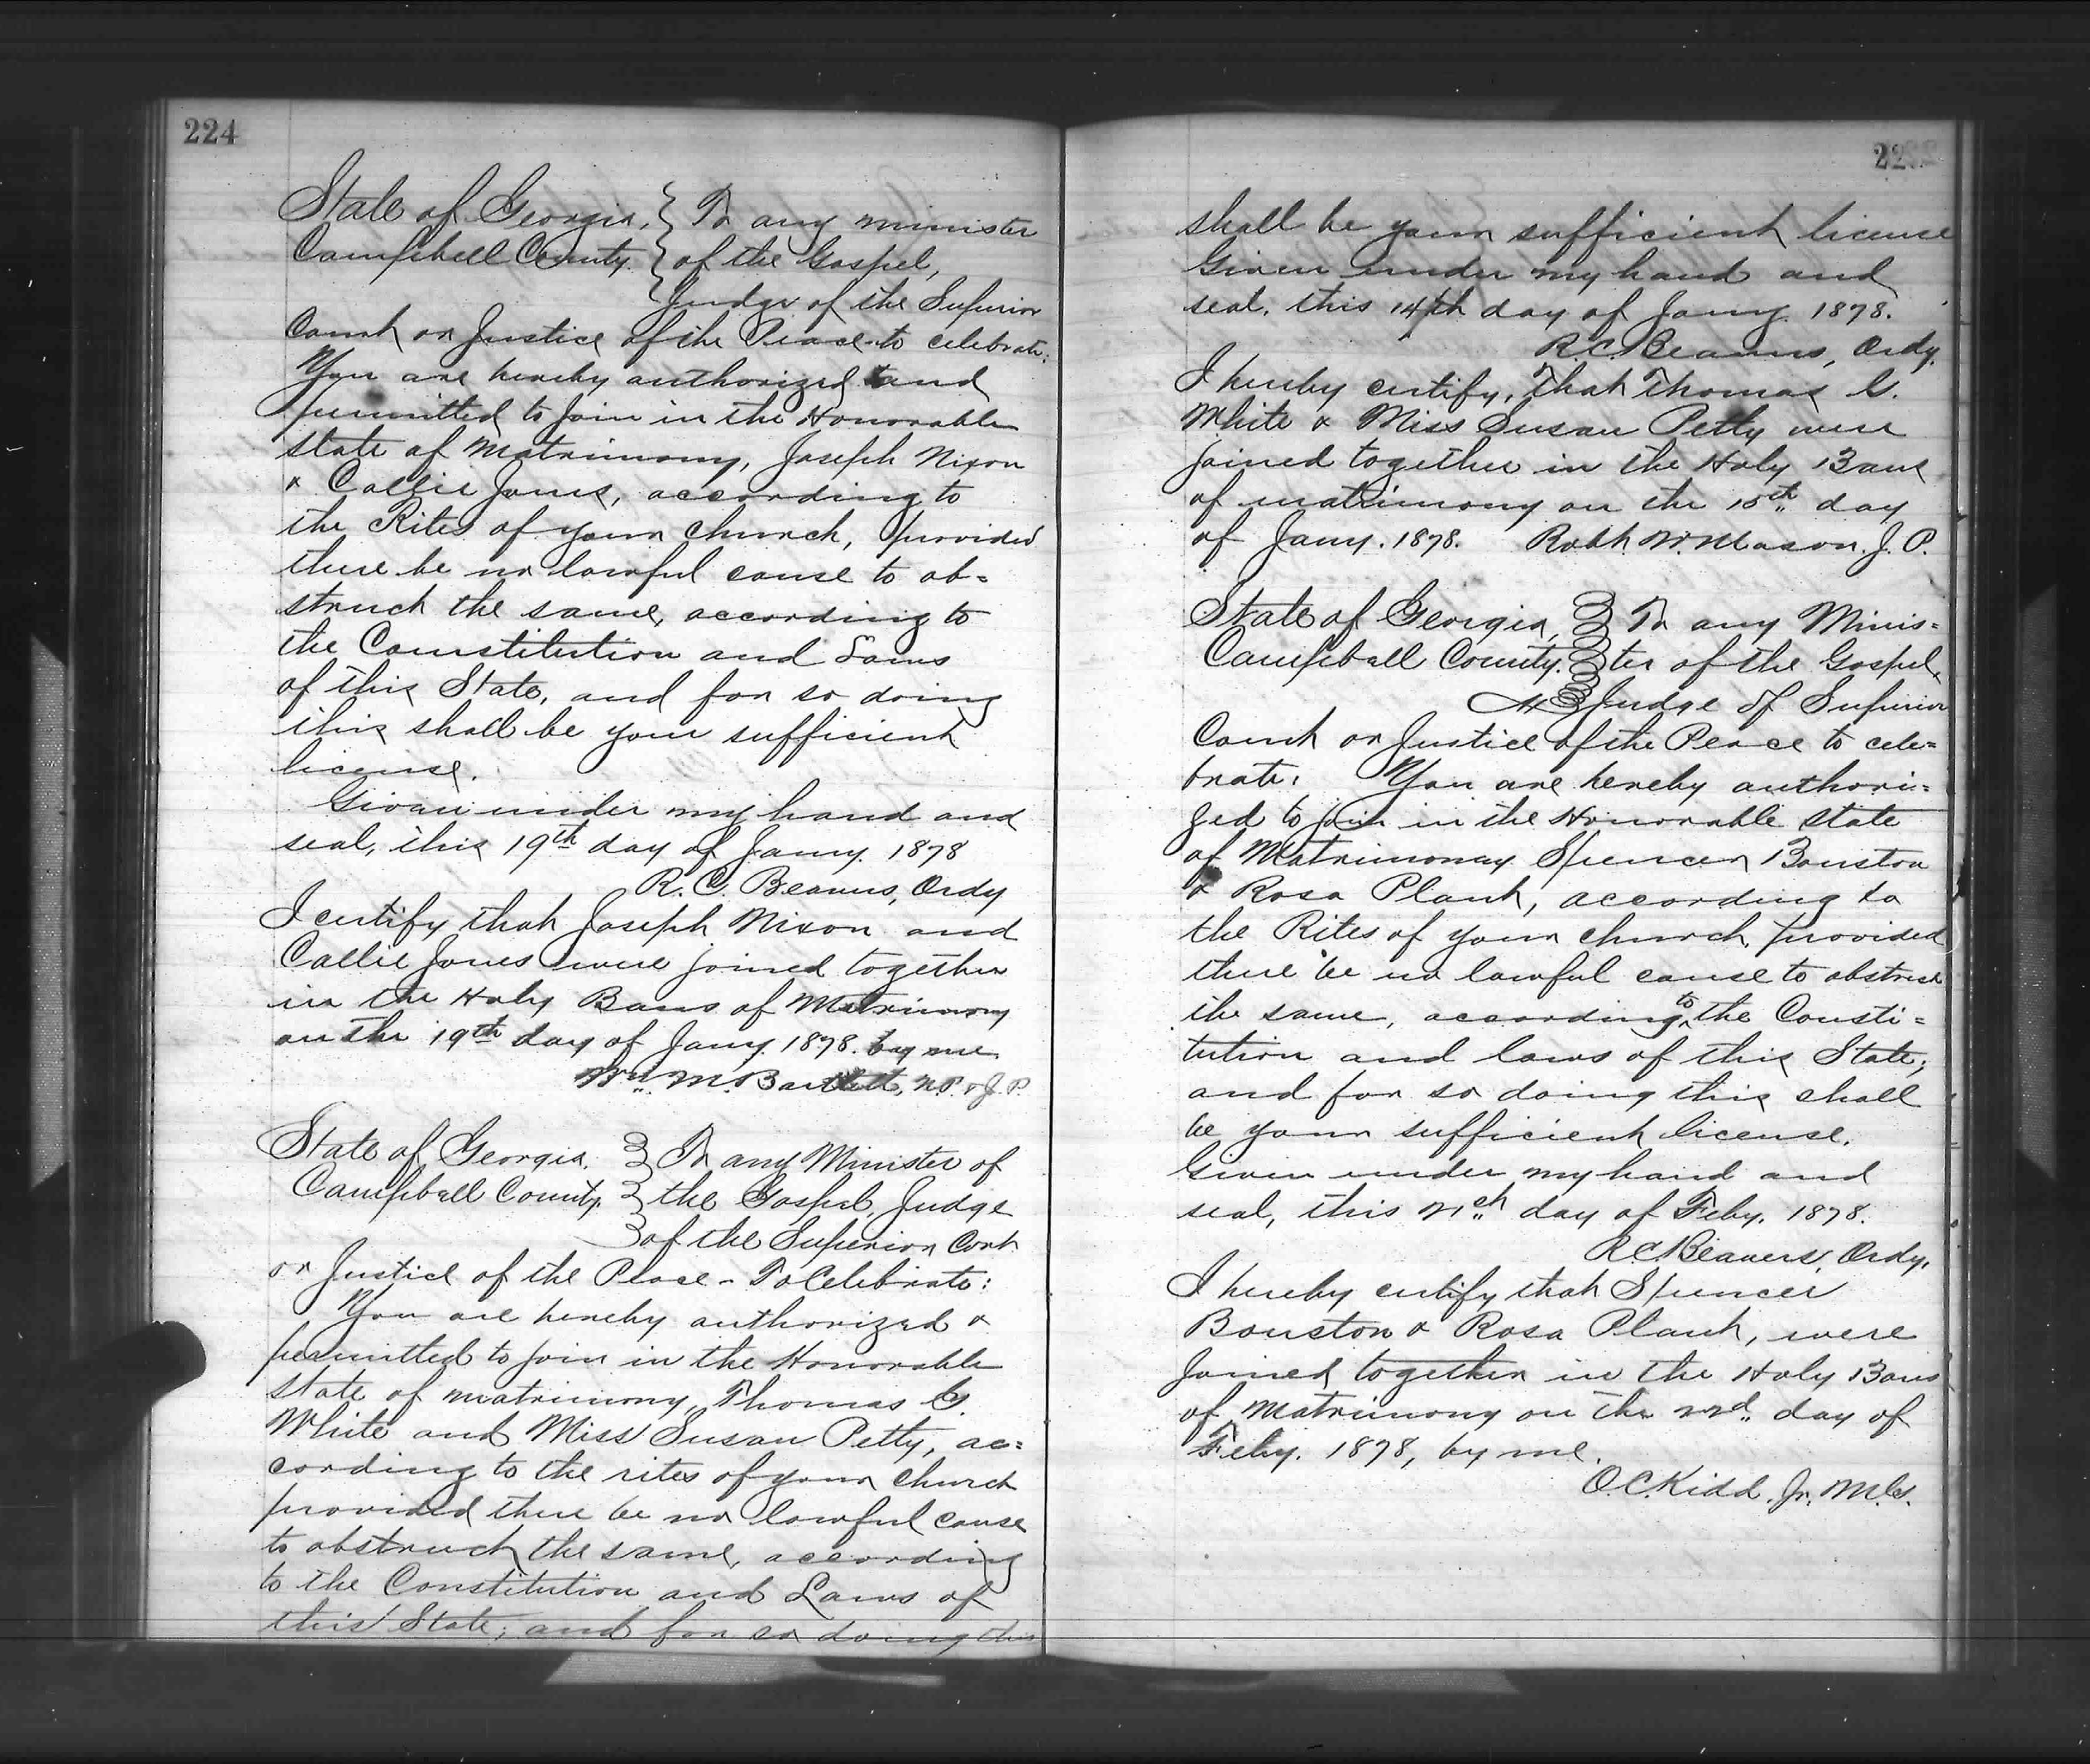 224
State of Georgia, To any minister
Campbell County. of the Gospel,
Judge of the Superior
Court or Justice of the Peace to celebrate:
You are hereby authorized and
permitted to join in the Honorable
state of matrimony, Joseph Nixon
& Callie Jones, according to
the Rites of your church, provided
there be no lawful cause to ob=
struct the same, according to
the Constitution and Laws
of this State, and for so doing
this shall be your sufficient
license.
Given under my hand and
seal, this 19th day of Jany. 1878
R. C. Beavers, Ordy
I certify that Joseph Nixon and
Callie Jones were joined together
in the Holy Bans of Matrimony
on the 19th day of Jany. 1878. by me
Wm. M. Bartlett, N.P. & J.P.
State of Georgia, To any Minister of
Campbell County. the Gospel, Judge
of the Superior Cort
or Justice of the Peace - To Celebrate:
You are hereby authorized &
permitted to join in the Honorable
state of matrimony, Thomas G.
White and Miss Susan Petty, ac=
cording to the rites of your church
provided there be no lawful cause
to obstruct the same, according
to the Constitution and Laws of
this State; and for so doing this
shall be your sufficient license
Given under my hand and
seal, this 14th day of Jany. 1878.
R.C. Beavers, Ordy.
I hereby certify, that Thomas G.
White & Miss Susan Petty were
joined together in the Holy Bans
of matrimony on the 15th day
of Jany. 1878. Robt W. Mason. J. P.
State of Georgia, To any Minis=
Campbell County. ter of the Gospel,
Judge of Superior
Court or Justice of the Peace to cele=
brate: You are hereby authori=
zed to join in the Honorable state
of Matrimonay Spencer Bouston
& Rosa Plant, according to
the Rites of your church, provided
there be no lawful cause to obstruct
the same, according to the Consti=
tution and laws of this State;
and for so doing this shall
be your sufficient license.
Given under my hand and
seal, this day of Feby. 1878.
R.C. Beavers, Ordy.
I hereby certify that Spencer
Bouston & Rosa Plant, were
joined together in the Holy Bans
of Matrimony on the 22d. day of
Feby. 1878, by me.
O.C. Kidd, Jr. M.G.